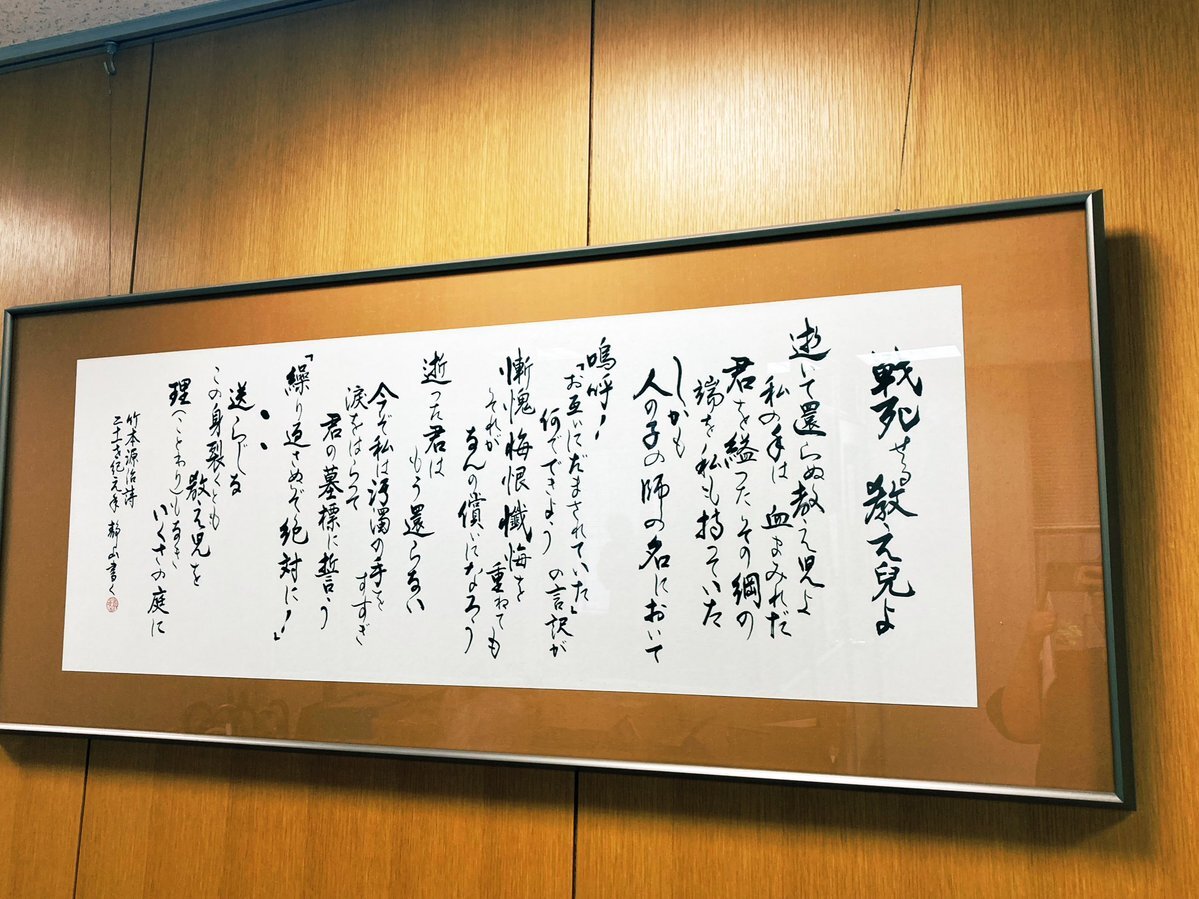 戦死せる 教え兒よ
逝いて還らぬ教え児よ
私の手は 血まみれだ
君を縊ったその綱の
端を私も持っていた
しかも
人の子の師の名において
嗚呼!
「お互いにだまされていた」
の言訳が
何でできよう
慚愧 悔恨 懺悔を
重ねても
それが
なんの償いになろう
逝った君は
もう還らない
今ぞ私は汚濁の手を
すすぎ
涙をはらって
君の墓標に誓う
「繰り返さぬぞ絶対に!」
送らじな
教え児を
この身裂くとも
いくさの庭に
理(ことわり)もなき
竹本源治詩
世紀元年 書く